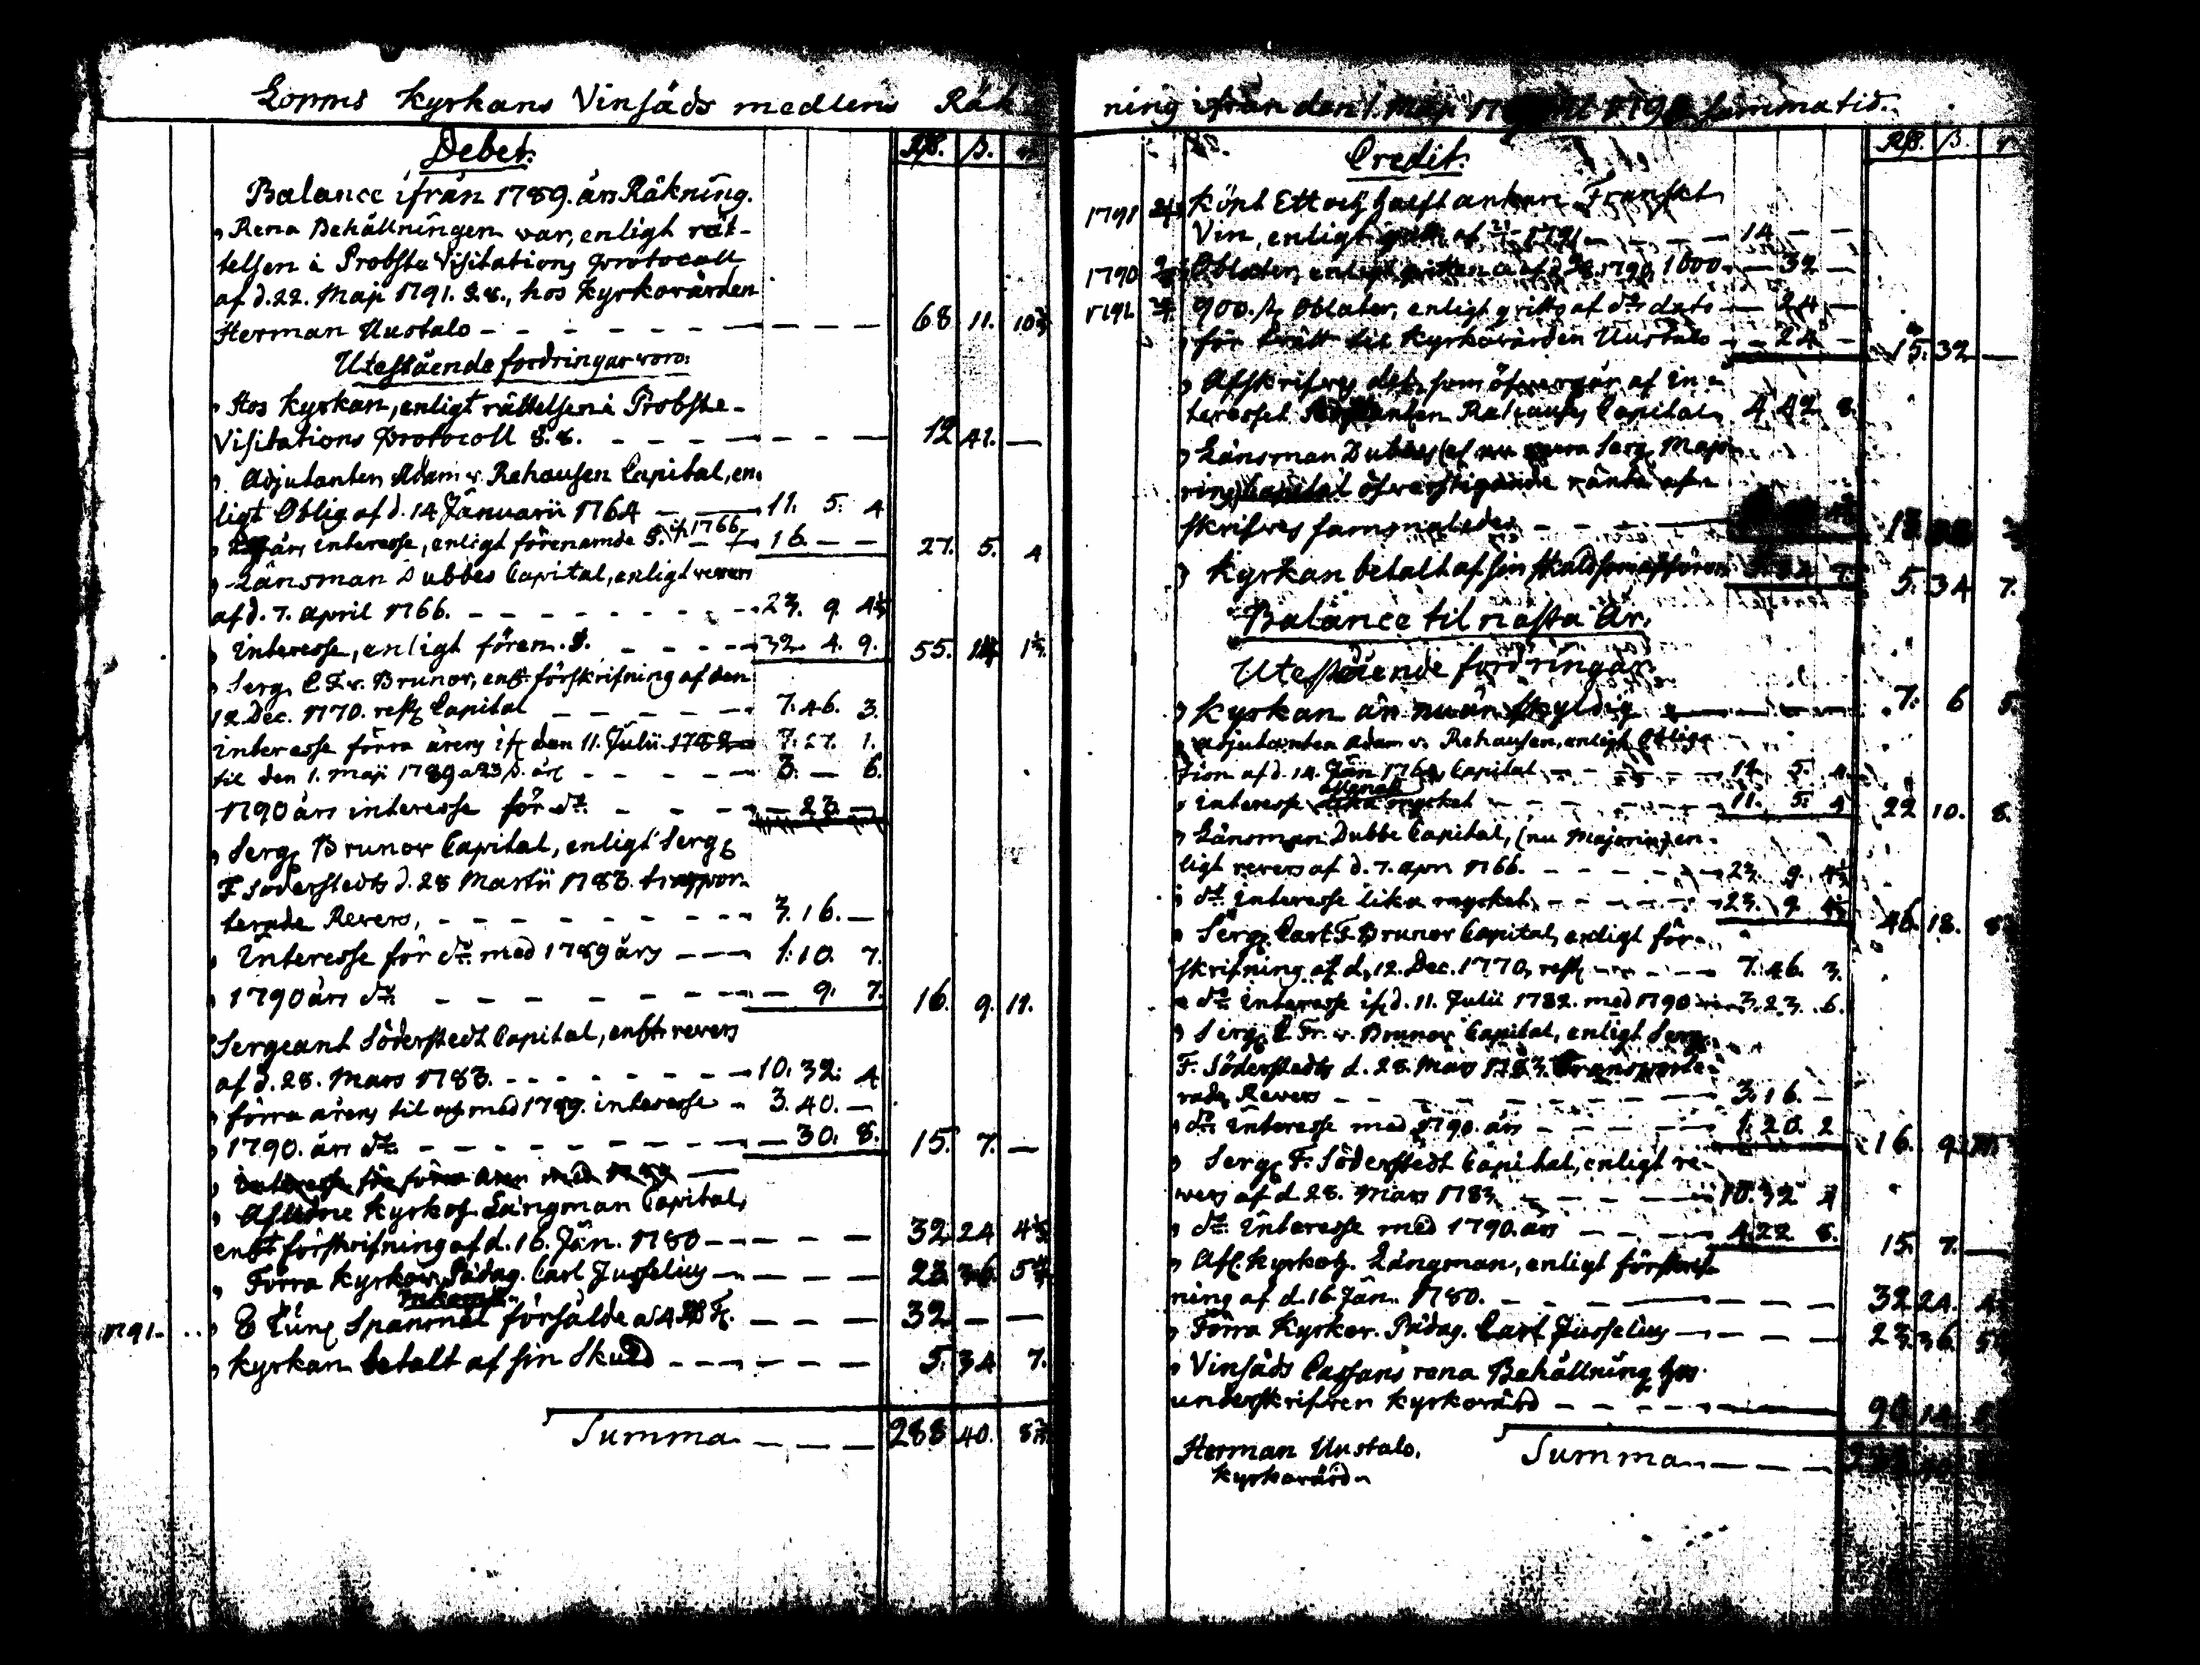 Lopmis Kyrkans Vinsäds medlens Räk
Debet.
Rdr. ß. r
Balance ifrån 1789. års Räkning.
Rena Behållningen war, enligt rät-
telsen i Probste Visitations protocoll
af d. 22. Maji 1791. §.8., hos Kyrkovärden
Herman Uustalo - - - - - 68 11. 10
Utestående fordringar voro.
Hos Kyrkan, enligt rättelsen i Probste-
Visitations Protocoll §.8. - - - - 12 41. —
Adjutanten Adam v. Rehausen Capital, en-
ligt Oblig. af d. 14 Januarii 1764 - - 11. 5. 4
års interesse, enligt förenämde §. if. 1766. - 16. - - 27. 5. 4
Länsman Dubbes Capital, enligt revers
af d. 7. april 1766. - - - - - 23. 9. 4½
interesse, enligt fören. §. - - - - 32. 4. 9. 55. 14 1½
Serg. C. F. v. Brunow, enl. förskrifning af den
12. Dec. 1770. rest. Capital - - - - 7. 46. 3.
interesse förra årens if. den 11. Julii 1782 7. 27. 1.
til den 1. Maji 1789 a 23 ß. årl. - - - 3. — 6.
1790 års interesse för do. - - - — 23. —
Serg. Brunow Capital, enligt Serg.
F Söderstedts d. 28 Martii 1783. transpor-
terade Revers, - - - - - - 3. 16. —
Interesse för do. med 1789 års - - - 1. 10. 7.
1790 års do. - - - - - - — 9. 7. 16. 9. 11.
Sergeant Söderstedt Capital, enl. revers
af d. 28. Mars 1783. - - - - - 10. 32. 4
förra årens til och med 1789. interesse - 3. 40. —
1790. års do. - - - - - - — 30. 8. 15. 7. —
interesse för förra åren med 1789 —
Aflidne Kyrkoh. Långman Capital,
enl. förskrifning af d. 16. Jän. 1780 - - - 32. 24 4½
Förra Kyrkov. Pädag. Carl Jusselius - - - 23. 36. 5
1791. - 8 Tunr Spanmål försålde a 4 Rdr. - - - 32. — —
Kyrkan betalt af sin skuld - - - 5. 34 7.
Summa - - - 288 40. 8
ning ifrån den 1. Maji til samma tid.
Credit.
Rdr. ß. r
1791 Köpt Ett och halft ankare Franskt
Vin, enligt af 1791 - - - 14 — —
1790 Oblater, enligt af 1790. 1000. — 32 —
1791. 900. st. Oblater, enligt qvitto af do. dato — 24 —
för til Kyrkovärden Uustalo - — 24 — 15. 32 —
Afskrifves det, som öfvergår af in-
teresset Rehausens Capital 4 42 8.
Länsman Dubbes nu Serg. Majo-
rins Capital öfverstigande ränta af-
skrifves sammaledes - - -
Kyrkan betalt af sin skuld 5. 34 7.
Balance til nästa år.
Utestående fordringar.
Kyrkan än nu än skyldig - - - 7. 6 5.
Adjutanten Adam v. Rehausen, enligt Obliga-
tion af d. 14. Jän 1764, Capital - - - 11. 5. 4
interesse lika mycket - - - - 11. 5. 4 22 10. 8.
Länsman Dubbe Capital, (nu Majorin) en-
ligt revers af d. 7. Apr. 1766. - - - - 23. 9. 4½
do. interesse lika mycket - - - - 23. 9 4½ 46. 18. 8
Serg. Carl F. Brunow Capital, enligt för-
skrifning af d. 12. Dec. 1770, rest. - - - 7. 46. 3.
do. interesse if. d. 11. Julii 1782. med 1790 3. 23. 6.
Serg. C. Fr. v. Brunow Capital, enligt Serg.
F. Söderstedts d. 28. Mars 1783. Transporte-
rade Revers - - - - - - 3. 16. —
do. interesse med 1790. års - - - 1. 20. 2 16. 9.
Serg. F. Söderstedt Capital, enligt re-
vers af d. 28. Mars 1783 - - - - 10. 32 4
do. interesse med 1790. års - - - 4. 22. 8. 15. 7. —
Afl. Kyrkoh. Långman, enligt förskrif-
ning af d. 16. Jän. 1780. - - - - 32 24. 4
Förra Kyrkov. Pädag. Carl Jusselius - - - 23. 36. 5
Vinsäds Cassans rena Behållning hos
underskrifven Kyrkovärd - - - -
Herman Uustalo. Summa - - -
Kyrkovärd